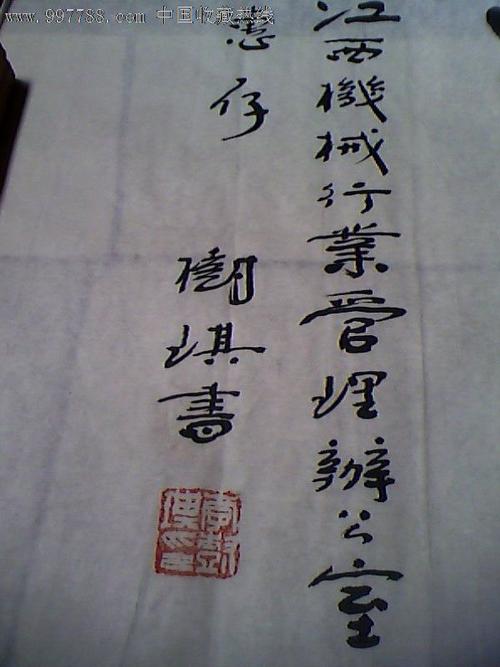 www.997788.com 中国收藏热线
江西機械行業管理辦公室
惠存
琪書